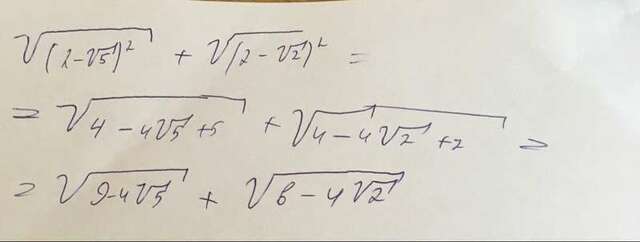 √(2-√5)² + √(2-√2)² =
= √4-4√5+5 + √4-4√2+2 =
= √9-4√5 + √6-4√2